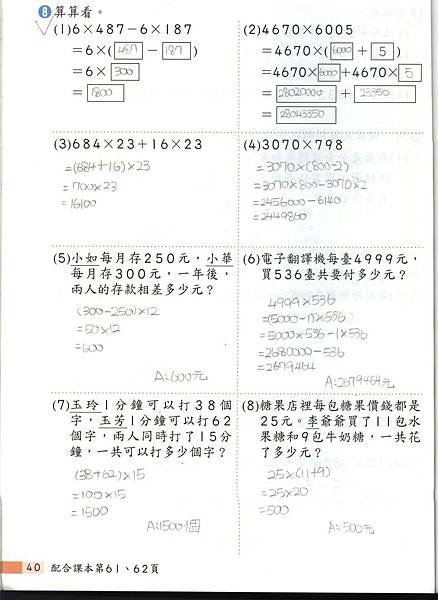 8 算算看。
(1)6×487-6×187
=6×(487-187)
=6×300
=1800
(2)4670×6005
=4670×(6000+5)
=4670×6000+4670×5
=28020000+23350
=28043350
(3)684×23+16×23
=(684+16)×23
=700×23
=16100
(4)3070×798
=3070×(800-2)
=3070×800-3070×2
=2456000-6140
=2449860
(5)小如每月存250元，小華
每月存300元，一年後，
兩人的存款相差多少元？
(300-250)×12
=50×12
=600
A:600元
(6)電子翻譯機每臺4999元，
買536臺共要付多少元？
4999×536
=(5000-1)×536
=5000×536-1×536
=2680000-536
=2679464
A:2679464元
(7)玉玲1分鐘可以打38個
字，玉芳1分鐘可以打62
個字，兩人同時打了15分
鐘，一共可以打多少個字？
(38+62)×15
=100×15
=1500
A:1500個
(8)糖果店裡每包糖果價錢都是
25元。李爺爺買了11包水
果糖和9包牛奶糖，一共花
了多少元？
25×(11+9)
=25×20
=500
A:500元
40 配合課本第61、62頁